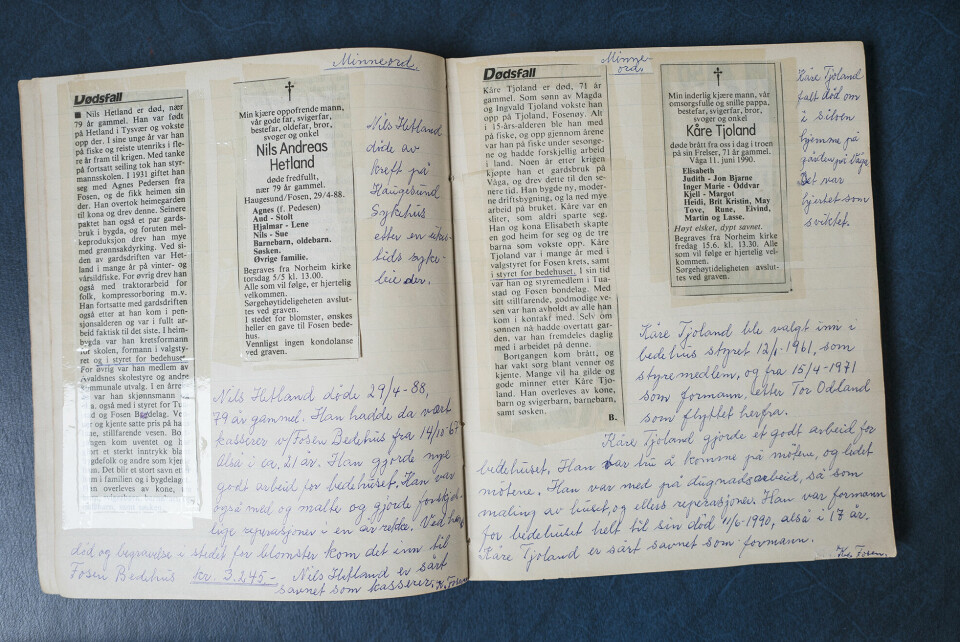 Minneord.
Dødsfall
Nils Hetland er død, nær
79 år gammel. Han var født
på Hetland i Tysvær og vokste
opp der. I sine unge år var han
på fiske og reiste utenriks i fle-
re år fram til krigen. Med tanke
på fortsatt seiling tok han styr-
mannsskolen. I 1931 giftet han
seg med Agnes Pedersen fra
Fosen, og de fikk heimen sin
der. Han overtok heimegarden
til kona og drev denne. Seinere
paktet han også et par gards-
bruk i bygda, og foruten mel-
keproduksjon drev han mye
med grønnsakdyrking. Ved si-
den av gardsdriften var Het-
land i mange år på vinter- og
vårsildfiske. For øvrig drev han
også med traktorarbeid for
folk, kompressorboring m.v.
Han fortsatte med gardsdriften
også etter at han kom i pen-
sjonsalderen og var i fullt ar-
beid faktisk til det siste. I heim-
bygda var han kretsformann
for skolen, formann i valgstyr
et og i styret for bedehuset
For øvrig var han medlem av
Avaldsnes skolestyre og andre
kommunale utvalg. I en årre
var han skjønnsmann
også med i styret for Tu
d og Fosen Bondelag. Ve
r og kjente satte pris på han
ne, stillfarende vesen. Bo
gen kom uventet og h
t et sterkt inntrykk bla
gdefolk og andre som kjen
n. Det blir et stort savn et
m i familien og i bygdelag
an overleves av kone,
†
Min kjære oppofrende mann,
vår gode far, svigerfar,
bestefar, oldefar, bror,
svoger og onkel
Nils Andreas
Hetland
døde fredfullt,
nær 79 år gammel.
Haugesund/Fosen, 29/4-88.
Agnes (f. Pedesen)
Aud - Stolt
Hjalmar - Lene
Nils - Sue
Barnebarn, oldebarn.
Søsken.
Øvrige familie.
Begraves fra Norheim kirke
torsdag 5/5 kl. 13.00.
Alle som vil følge, er hjertelig
velkommen.
Sørgehøytideligheten avslut-
tes ved graven.
I stedet for blomster, ønskes
heller en gave til Fosen bede-
hus.
Vennligst ingen kondolanse
ved graven.
Nils Hetland
døde av
kreft på
Haugesund
Sykehus
etter en
tids syke-
leie der.
Nils Hetland døde 29/4-88,
79 år gammel. Han hadde da vært
kasserer v/Fosen Bedehus fra 14/10-67
Alså i ca. 21 år. Han gjorde mye
godt arbeid for bedehuset. Han var
også med og malte og gjorde forskjel-
lige reperasjoner i en årrekke. Ved hans
død og begravelse i stedet for blomster kom det inn til
Fosen Bedehus kr. 3.245.- Nils Hetland er sårt
savnet som kasserer. K. Fosen
Minne-
ord.
Dødsfall
Kåre Tjoland er død, 71 år
gammel. Som sønn av Magda
og Ingvald Tjoland vokste han
opp på Tjoland, Fosenøy. Alt
i 15-års-alderen ble han med
på fiske, og opp gjennom årene
var han på fiske under sesonge-
ne og hadde forskjellig arbeid
i land. Noen år etter krigen
kjøpte han et gardsbruk på
Våga, og drev dette til den se-
nere tid. Han bygde ny, moder-
ne driftsbygning, og la ned mye
arbeid på bruket. Kåre var en
sliter, som aldri sparte seg.
Han og kona Elisabeth skapte
en god heim for seg og de tre
barna som vokste opp. Kåre
Tjoland var i mange år med i
valgstyret for Fosen krets, samt
i styret for bedehuset. I sin tid
var han og styremedlem i Tua-
stad og Fosen bondelag. Med
sitt stillfarende, godmodige ve-
sen var han avholdt av alle han
kom i kontakt med. Selv om
sønnen nå hadde overtatt gar-
den, var han fremdeles daglig
med i arbeidet på denne.
Bortgangen kom brått, og
har vakt sorg blant venner og
kjente. Mange vil ha gilde og
gode minner etter Kåre Tjo-
land. Han overleves av kone,
barn og svigerbarn, barnebarn,
samt søsken.
B.
†
Min inderlig kjære mann, vår
omsorgsfulle og snille pappa,
bestefar, svigerfar, bror,
svoger og onkel
Kåre Tjoland
døde brått fra oss i dag i troen
på sin Frelser, 71 år gammel.
Våga 11. juni 1990.
Elisabeth
Judith - Jon Bjarne
Inger Marie - Oddvar
Kjell - Margot
Heidi, Brit Kristin, May
Tove, Rune, Eivind,
Martin og Lasse.
Høyt elsket, dypt savnet.
Begraves fra Norheim kirke
fredag 15.6. kl. 13.30. Alle
som vil følge er hjertelig vel-
kommen.
Sørgehøytideligheten avslut-
tes ved graven.
Kåre Tjoland
falt død om
i siloen
hjemme på
gården på Våga.
Det var
hjertet som
sviktet.
Kåre Tjoland ble valgt inn i
bedehus styret 12/1-1961, som
styremedlem, og fra 15/4-1971
som formann, etter Tor Odland
som flyttet herfra.
Kåre Tjoland gjorde et godt arbeid for
bedehuset. Han var tru å komme på møtene, og ledet
møtene. Han var med på dugnadsarbeid, så som
maling av huset, og ellers reperasjoner. Han var formann
for bedehuset helt til sin død 11/6-1990, alså i 17 år.
Kåre Tjoland er sårt savnet som formann.
Kr. Fosen.